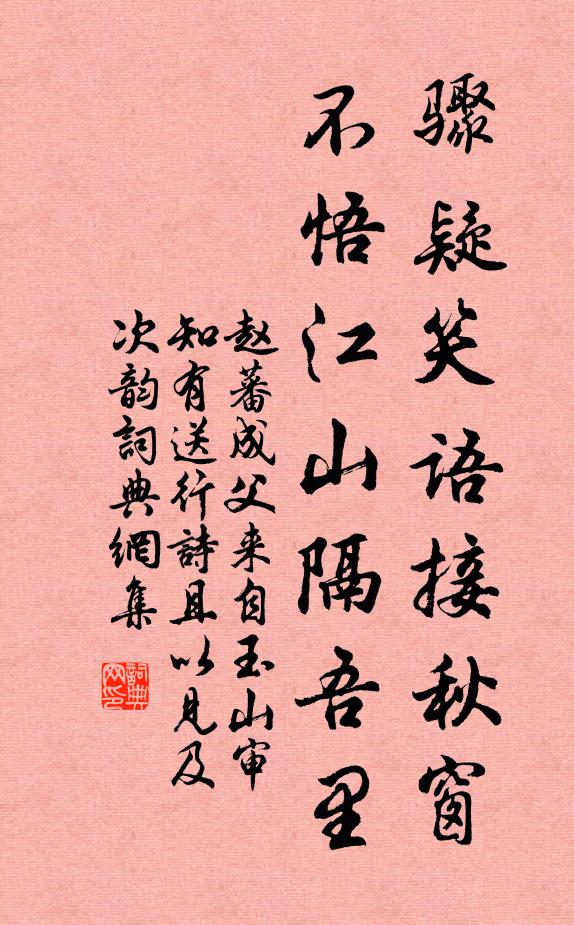 骤疑笑语接秋窗
不悟江山隔吾里
赵蕃成父来自玉山审
知有送行詩且以见及
次韵詞典網集
詞典网印